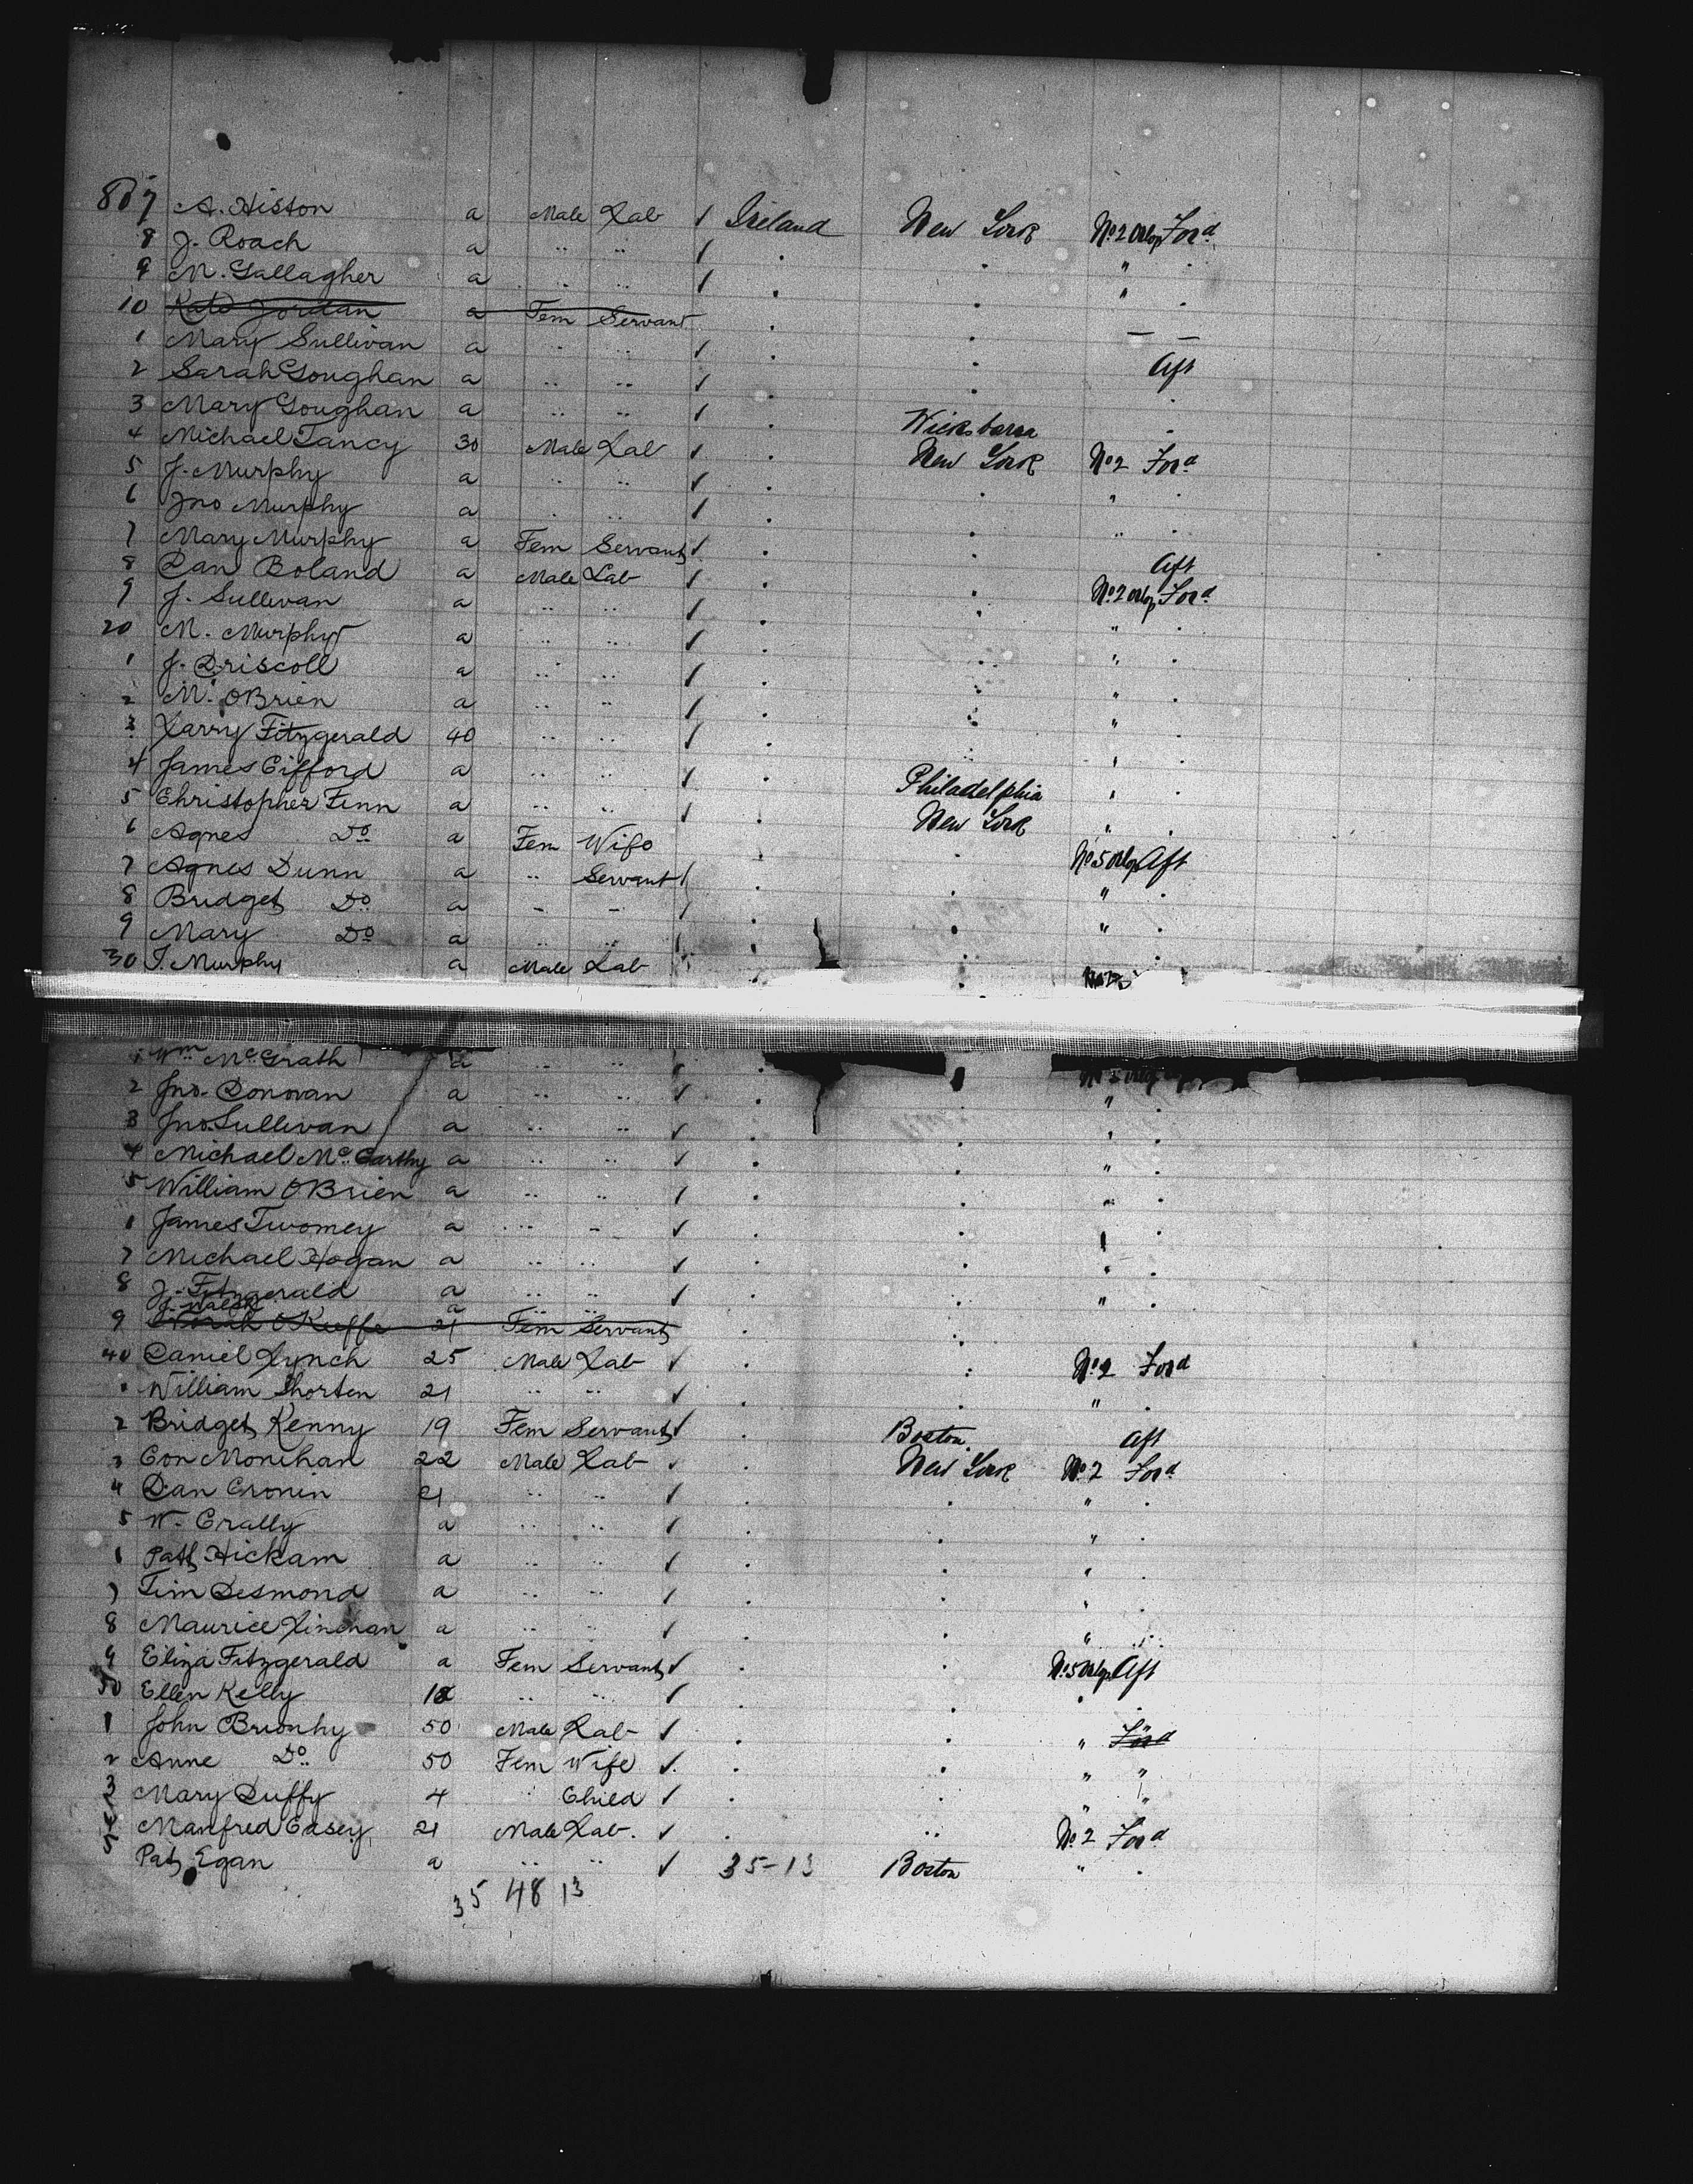 807 A. Histon a Male Lab ✓ Ireland New York No. 2 Orlop Ford
8 J. Roach a " " ✓ . . " .
9 M. Gallagher a " " ✓ . . " .
10 Kate Jordan a Fem Servant . . — —
1 Mary Sullivan a " " ✓ . . Aft
2 Sarah Goughan a " " ✓ . . .
3 Mary Goughan a " " ✓ . Wicksbarra .
4 Michael Tancy 30 Male Lab ✓ . New York No. 2 Ford
5 J. Murphy a " " ✓ . . " .
6 Jno Murphy a " " ✓ . . " .
7 Mary Murphy a Fem Servant ✓ . . Aft
8 Dan Boland a Male Lab ✓ . . No. 2 Orlop Ford
9 J. Sullivan a " " ✓ . . " .
20 M. Murphy a " " ✓ . . " .
1 J. Driscoll a " " ✓ . . " .
2 M. OBrien a " " ✓ . . "
3 Larry Fitzgerald 40 " " ✓ . . " .
4 James Gifford a " " ✓ . Philadelphia " .
5 Christopher Finn a " " ✓ . New York " .
6 Agnes Do a Fem Wife . No. 5 Orlop Aft
7 Agnes Dunn a " Servant ✓ . . " .
8 Bridget Do a " " ✓ . . " .
9 Mary Do a " " ✓ . . .
30 J. Murphy a Male Lab ✓ . . No. 2
1 Wm McGrath a " " ✓ . .
2 Jno. Donovan a " " ✓ . . " .
3 Jno. Sullivan a " " ✓ . . " .
4 Michael McCarthy a " " ✓ . . " .
5 William OBrien a " " ✓ . . " .
6 James Twomey a " " ✓ . . " .
7 Michael Hogan a " " ✓ . . " .
8 J. Fitzgerald a " " ✓ . . " .
J. Walsh a " "
9 Norah OKeeffe 21 Fem Servant .
40 Daniel Lynch 25 Male Lab ✓ . . No. 2 Ford
1 William Shorten 21 " " ✓ . . " .
2 Bridget Kenny 19 Fem Servant ✓ . Boston Aft
3 Con Monihan 22 Male Lab ✓ . New York No. 2 Ford
4 Dan Cronin 21 " " ✓ . . " .
5 W. Crally a " " ✓ . . " .
6 Patk Hickam a " " ✓ . . " .
7 Tim Desmond a " " ✓ . . " .
8 Maurice Linehan a " " ✓ . . " .
9 Eliza Fitzgerald a Fem Servant ✓ . . No. 5 Orlop Aft
50 Ellen Kelly " " ✓ . . " .
1 John Brionhy 50 Male Lab ✓ . . " Ford
2 Anne Do 50 Fem Wife ✓ . . " "
3 Mary Duffy 4 " Child ✓ . . " "
4 Manfred Casey 21 Male Lab. ✓ . " No. 2 Ford
5 Pat Egan a " " ✓ 35-13 Boston " .
35 48 13